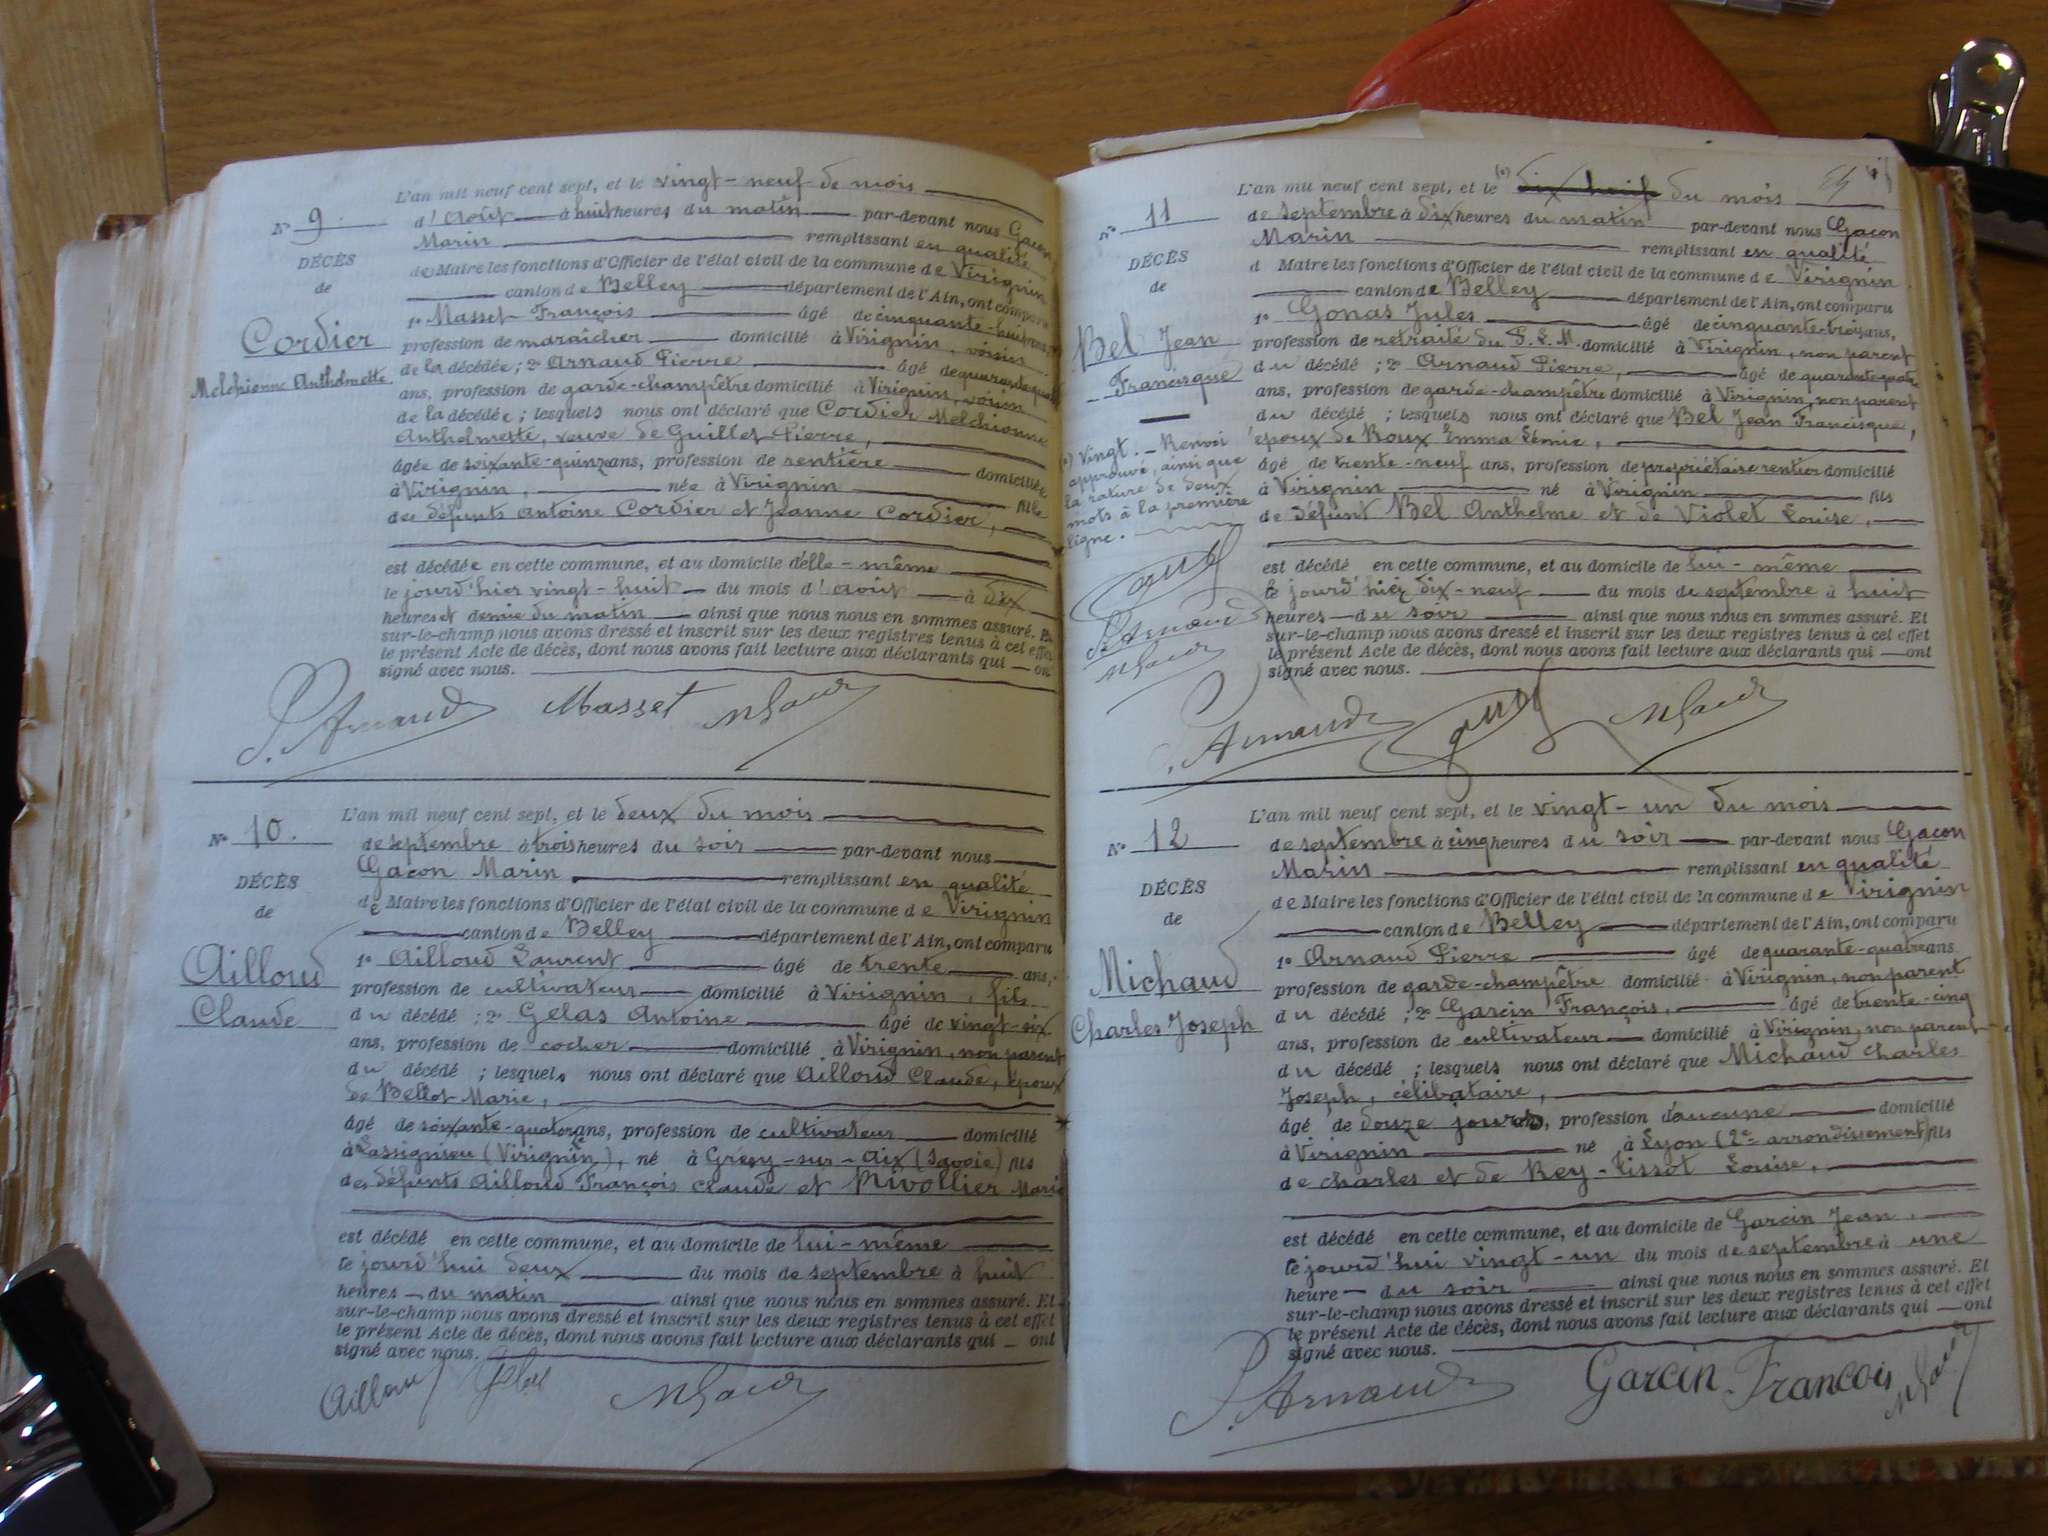 L'an mil neuf cent sept, et le vingt-neuf du mois
N° 9.
d'Août à huit heures du matin par-devant nous Gacon
Marin remplissant en qualité
DÉCÈS
de Maire les fonctions d'Officier de l'état civil de la commune de Virignin
de
canton de Belley département de l'Ain, ont comparu
1° Masset François âgé de cinquante-huit ans,
Cordier
profession de maraîcher domicilié à Virignin, voisin
Melchionne Anthelmette
de la décédée ; 2° Arnaud Pierre âgé de quarante-quatre
ans, profession de garde-champêtre domicilié à Virignin, voisin
de la décédée ; lesquels nous ont déclaré que Cordier Melchionne
Anthelmette, veuve de Guillet Pierre,
âgée de soixante-quinze ans, profession de rentière domiciliée
à Virignin, née à Virignin fille
des défunts Antoine Cordier et Jeanne Cordier,
est décédée en cette commune, et au domicile d'elle-même
le jourd'hier vingt-huit du mois d'Août à dix
heures et demie du matin ainsi que nous nous en sommes assuré. Et
sur-le-champ nous avons dressé et inscrit sur les deux registres tenus à cet effet
le présent Acte de décès, dont nous avons fait lecture aux déclarants qui ont
signé avec nous.
P. Arnaud Masset MGacon
L'an mil neuf cent sept, et le deux du mois
N° 10.
de septembre à trois heures du soir par-devant nous
Gacon Marin remplissant en qualité
DÉCÈS
de Maire les fonctions d'Officier de l'état civil de la commune de Virignin
de
canton de Belley département de l'Ain, ont comparu
Ailloud
1° Ailloud Laurent âgé de trente ans,
profession de cultivateur domicilié à Virignin, fils
Claude
du décédé ; 2° Gelas Antoine âgé de vingt-six
ans, profession de cocher domicilié à Virignin, non parent
du décédé ; lesquels nous ont déclaré que Ailloud Claude, époux
de Bellot Marie,
âgé de soixante-quatorze ans, profession de cultivateur domicilié
à Lassignieu (Virignin), né à Gresy-sur-Aix (Savoie) fils
des défunts Ailloud François Claude et Mivollier Marie
est décédé en cette commune, et au domicile de lui-même
le jourd'hui deux du mois de septembre à huit
heures du matin ainsi que nous nous en sommes assuré. Et
sur-le-champ nous avons dressé et inscrit sur les deux registres tenus à cet effet
le présent Acte de décès, dont nous avons fait lecture aux déclarants qui ont
signé avec nous.
Ailloud Gelas MGacon
L'an mil neuf cent sept, et le (a) dix huit du mois
N° 11
de septembre à dix heures du matin par-devant nous Gacon
Marin remplissant en qualité
DÉCÈS
d Maire les fonctions d'Officier de l'état civil de la commune de Virignin
de
canton de Belley département de l'Ain, ont comparu
1° Gonas Jules âgé de cinquante-trois ans,
Bel Jean
profession de retraité du P. L. M. domicilié à Virignin, non parent
Francisque
du décédé ; 2° Arnaud Pierre, âgé de quarante-quatre
ans, profession de garde-champêtre domicilié à Virignin, non parent
du décédé ; lesquels nous ont déclaré que Bel Jean Francisque,
époux de Roux Emma Lémie,
(a) Vingt. — Renvoi
approuvé, ainsi que
la rature de deux
mots à la première
ligne.
âgé de trente-neuf ans, profession de propriétaire rentier domicilié
à Virignin né à Virignin fils
de défunt Bel Anthelme et de Violet Louise,
est décédé en cette commune, et au domicile de lui-même
le jourd'hier dix-neuf du mois de septembre à huit
heures du soir ainsi que nous nous en sommes assuré. Et
P. Arnaud
sur-le-champ nous avons dressé et inscrit sur les deux registres tenus à cet effet
MGacon
le présent Acte de décès, dont nous avons fait lecture aux déclarants qui ont
signé avec nous.
P. Arnaud MGacon
L'an mil neuf cent sept, et le vingt-un du mois
N° 12
de septembre à cinq heures du soir par-devant nous Gacon
Marin remplissant en qualité
DÉCÈS
de Maire les fonctions d'Officier de l'état civil de la commune de Virignin
de
canton de Belley département de l'Ain, ont comparu
1° Arnaud Pierre âgé de quarante-quatre ans
Michaud
profession de garde-champêtre domicilié à Virignin, non parent
Charles Joseph
du décédé ; 2° Garcin François, âgé de trente-cinq
ans, profession de cultivateur domicilié à Virignin, non parent
du décédé ; lesquels nous ont déclaré que Michaud Charles
Joseph, célibataire,
âgé de douze jours, profession d'aucune domicilié
à Virignin né à Lyon (2e arrondissement) fils
de Charles et de Rey-Tissot Louise,
est décédé en cette commune, et au domicile de Garcin Jean,
le jourd'hui vingt-un du mois de septembre à une
heure du soir ainsi que nous nous en sommes assuré. Et
sur-le-champ nous avons dressé et inscrit sur les deux registres tenus à cet effet
le présent Acte de décès, dont nous avons fait lecture aux déclarants qui ont
signé avec nous.
P. Arnaud Garcin François MGacon